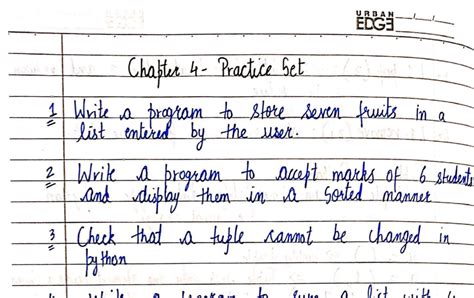 URBAN
EDGE
Chapter 4 - Practice Set
1 Write a program to store seven fruits in a
list entered by the user.
2 Write a program to accept marks of 6 students
and display them in a sorted manner
3 Check that a tuple cannot be changed in
python
Write a program to sum a list with